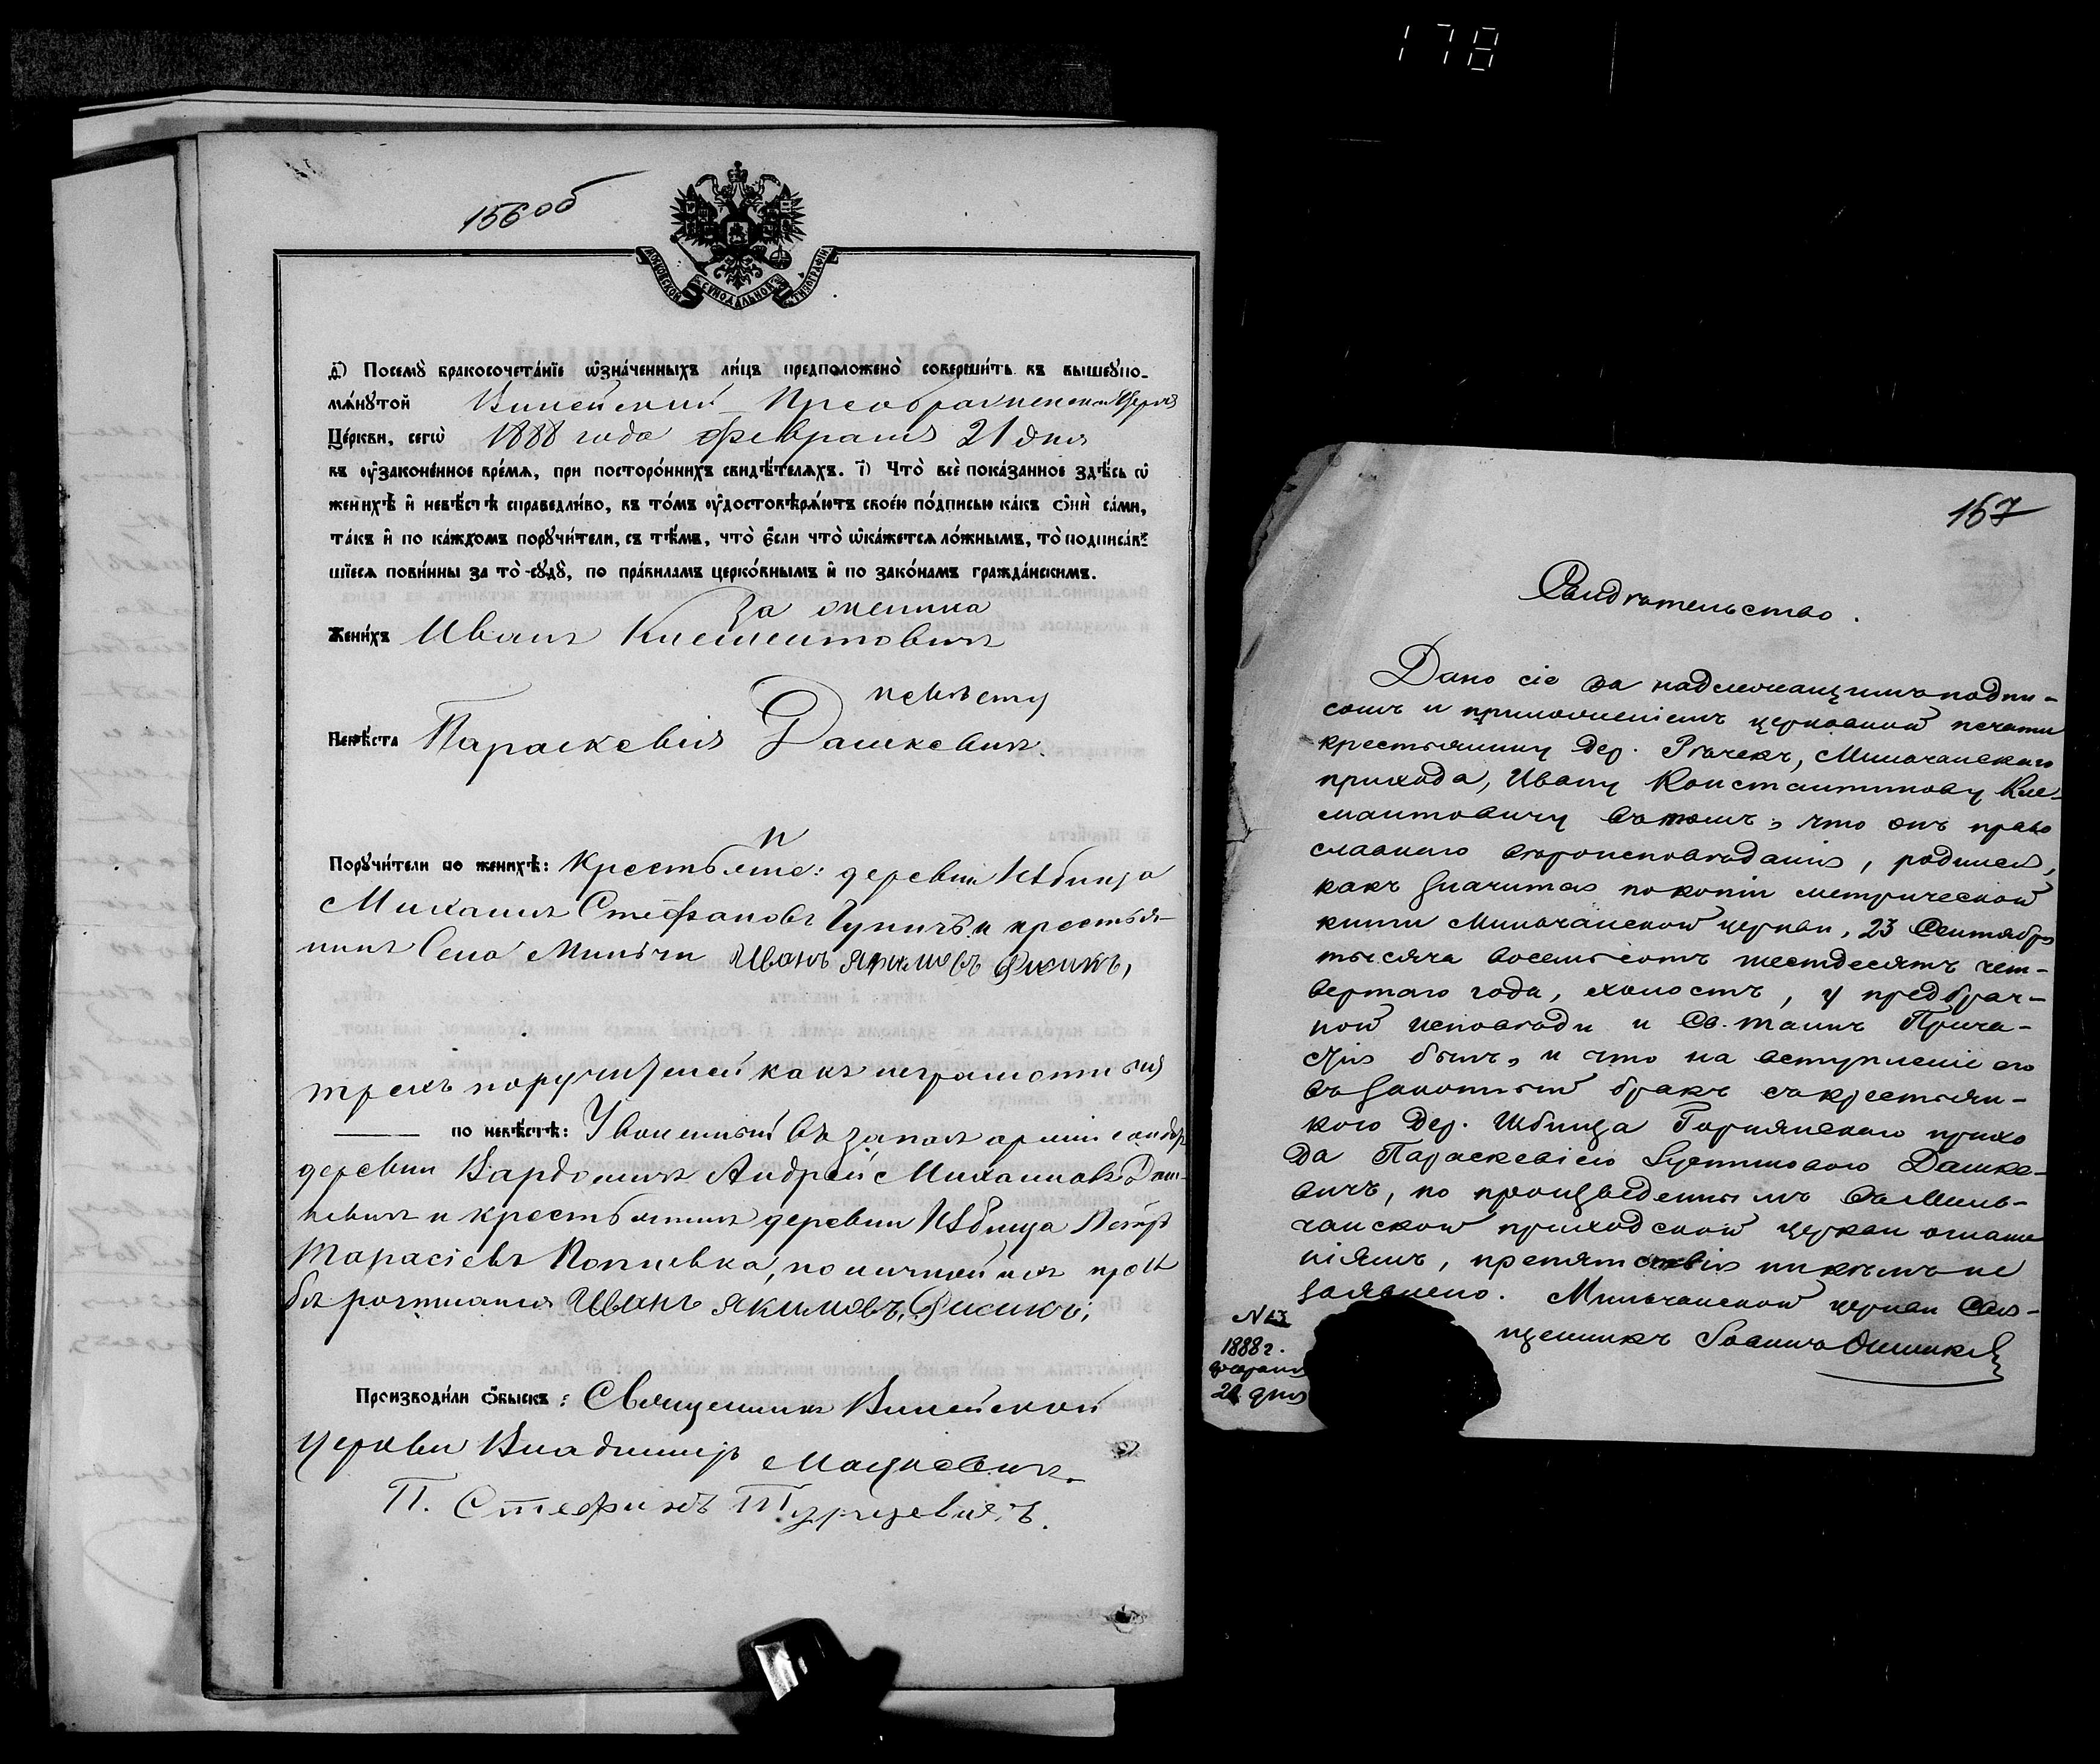 178
156 об
МОСКОВСКОЙ СѴНОДАЛЬНОЙ ТИПОГРАФІИ
д҃) Посемꙋ̀ бракосочета́нїе ѡ҆зна́ченныхъ ли́цъ предположено̀ соверши́ть въ вышеꙋпо-
мѧ́нꙋтой Вилейской Преображенской Церкв
Це́ркви, сегѡ̀ 1888 года февраля 21 дня
въ ᲂу҆законе́нное вре́мѧ, при посторо́ннихъ свидѣ́телѧхъ. і҃) Что̀ всѐ пока́занное здѣ́сь ѡ҆
женихѣ̀ и҆ невѣ́стѣ справедли́во, въ то́мъ ᲂу҆достовѣрѧ́ютъ свое́ю по́дписью ка́къ ѻ҆нѝ са́ми,
та́къ и҆ по ка́ждомъ порꙋчи́тели, съ тѣ́мъ, что̀ є҆́сли что̀ ѡ҆ка́жетсѧ ло́жнымъ, то̀ подписа́в-
шїесѧ пови́нны за то̀ сꙋдꙋ̀, по пра́виламъ церко́внымъ и҆ по зако́намъ гражда́нскимъ.
за жениха
Жени́хъ Иванъ Клемантовичъ
невѣсту
Невѣ́ста Параскевія Дашкевичъ.
и
Порꙋчи́тели по женихѣ̀: Крестьяне: деревни Избища
Михаилъ Стефановъ и крестья-
нинъ села Мильчи Иванъ Якимовъ Фисикъ,
трехъ поручителей какъ неграмотный
по невѣ́стѣ: Уволенный въ запасъ арміи
деревни Вардомичъ Андрей Михаиловъ Даш-
кевичъ и крестьянинъ деревни Избища Петръ
Тарасіевъ по личной ихъ прось
бѣ росписался Иванъ Якимовъ Фисикъ,
Производи́ли ѻ҆́быскъ: Священникъ Вилейской
церкви Владимиръ Мацкевичъ.
П. Стефанъ Турцевичъ.
157
Свидѣтельство.
Дано сіе за надлежащимъ подпи-
сомъ и приложеніемъ церковной печати
крестьянину дер. Рѣчекъ, Мильчанскаго
прихода, Ивану Константинову Кле-
мантовичу въ томъ, что онъ право
славнаго вѣроисповѣданія, родился,
какъ значится по копіи метрической
книги Мильчанской церкви, 23 Сентября
тысяча восемьсотъ шестдесятъ чет-
вертаго года, холостъ, у предбрач-
ной исповѣди и Св. таинъ Прича-
стія былъ, и что на вступленіе его
въ законный бракъ съ крестьян-
кою дер. Избища Парискевіею Дашке-
вичъ, по произведеннымъ въ Миль-
чанской приходской церкви оглаше
ніямъ, препятствія никѣмъ не
заявлено. Мильчанской церкви Свя-
щенникъ Іоаннъ
N 13
1888 г.
февраля
21 дня